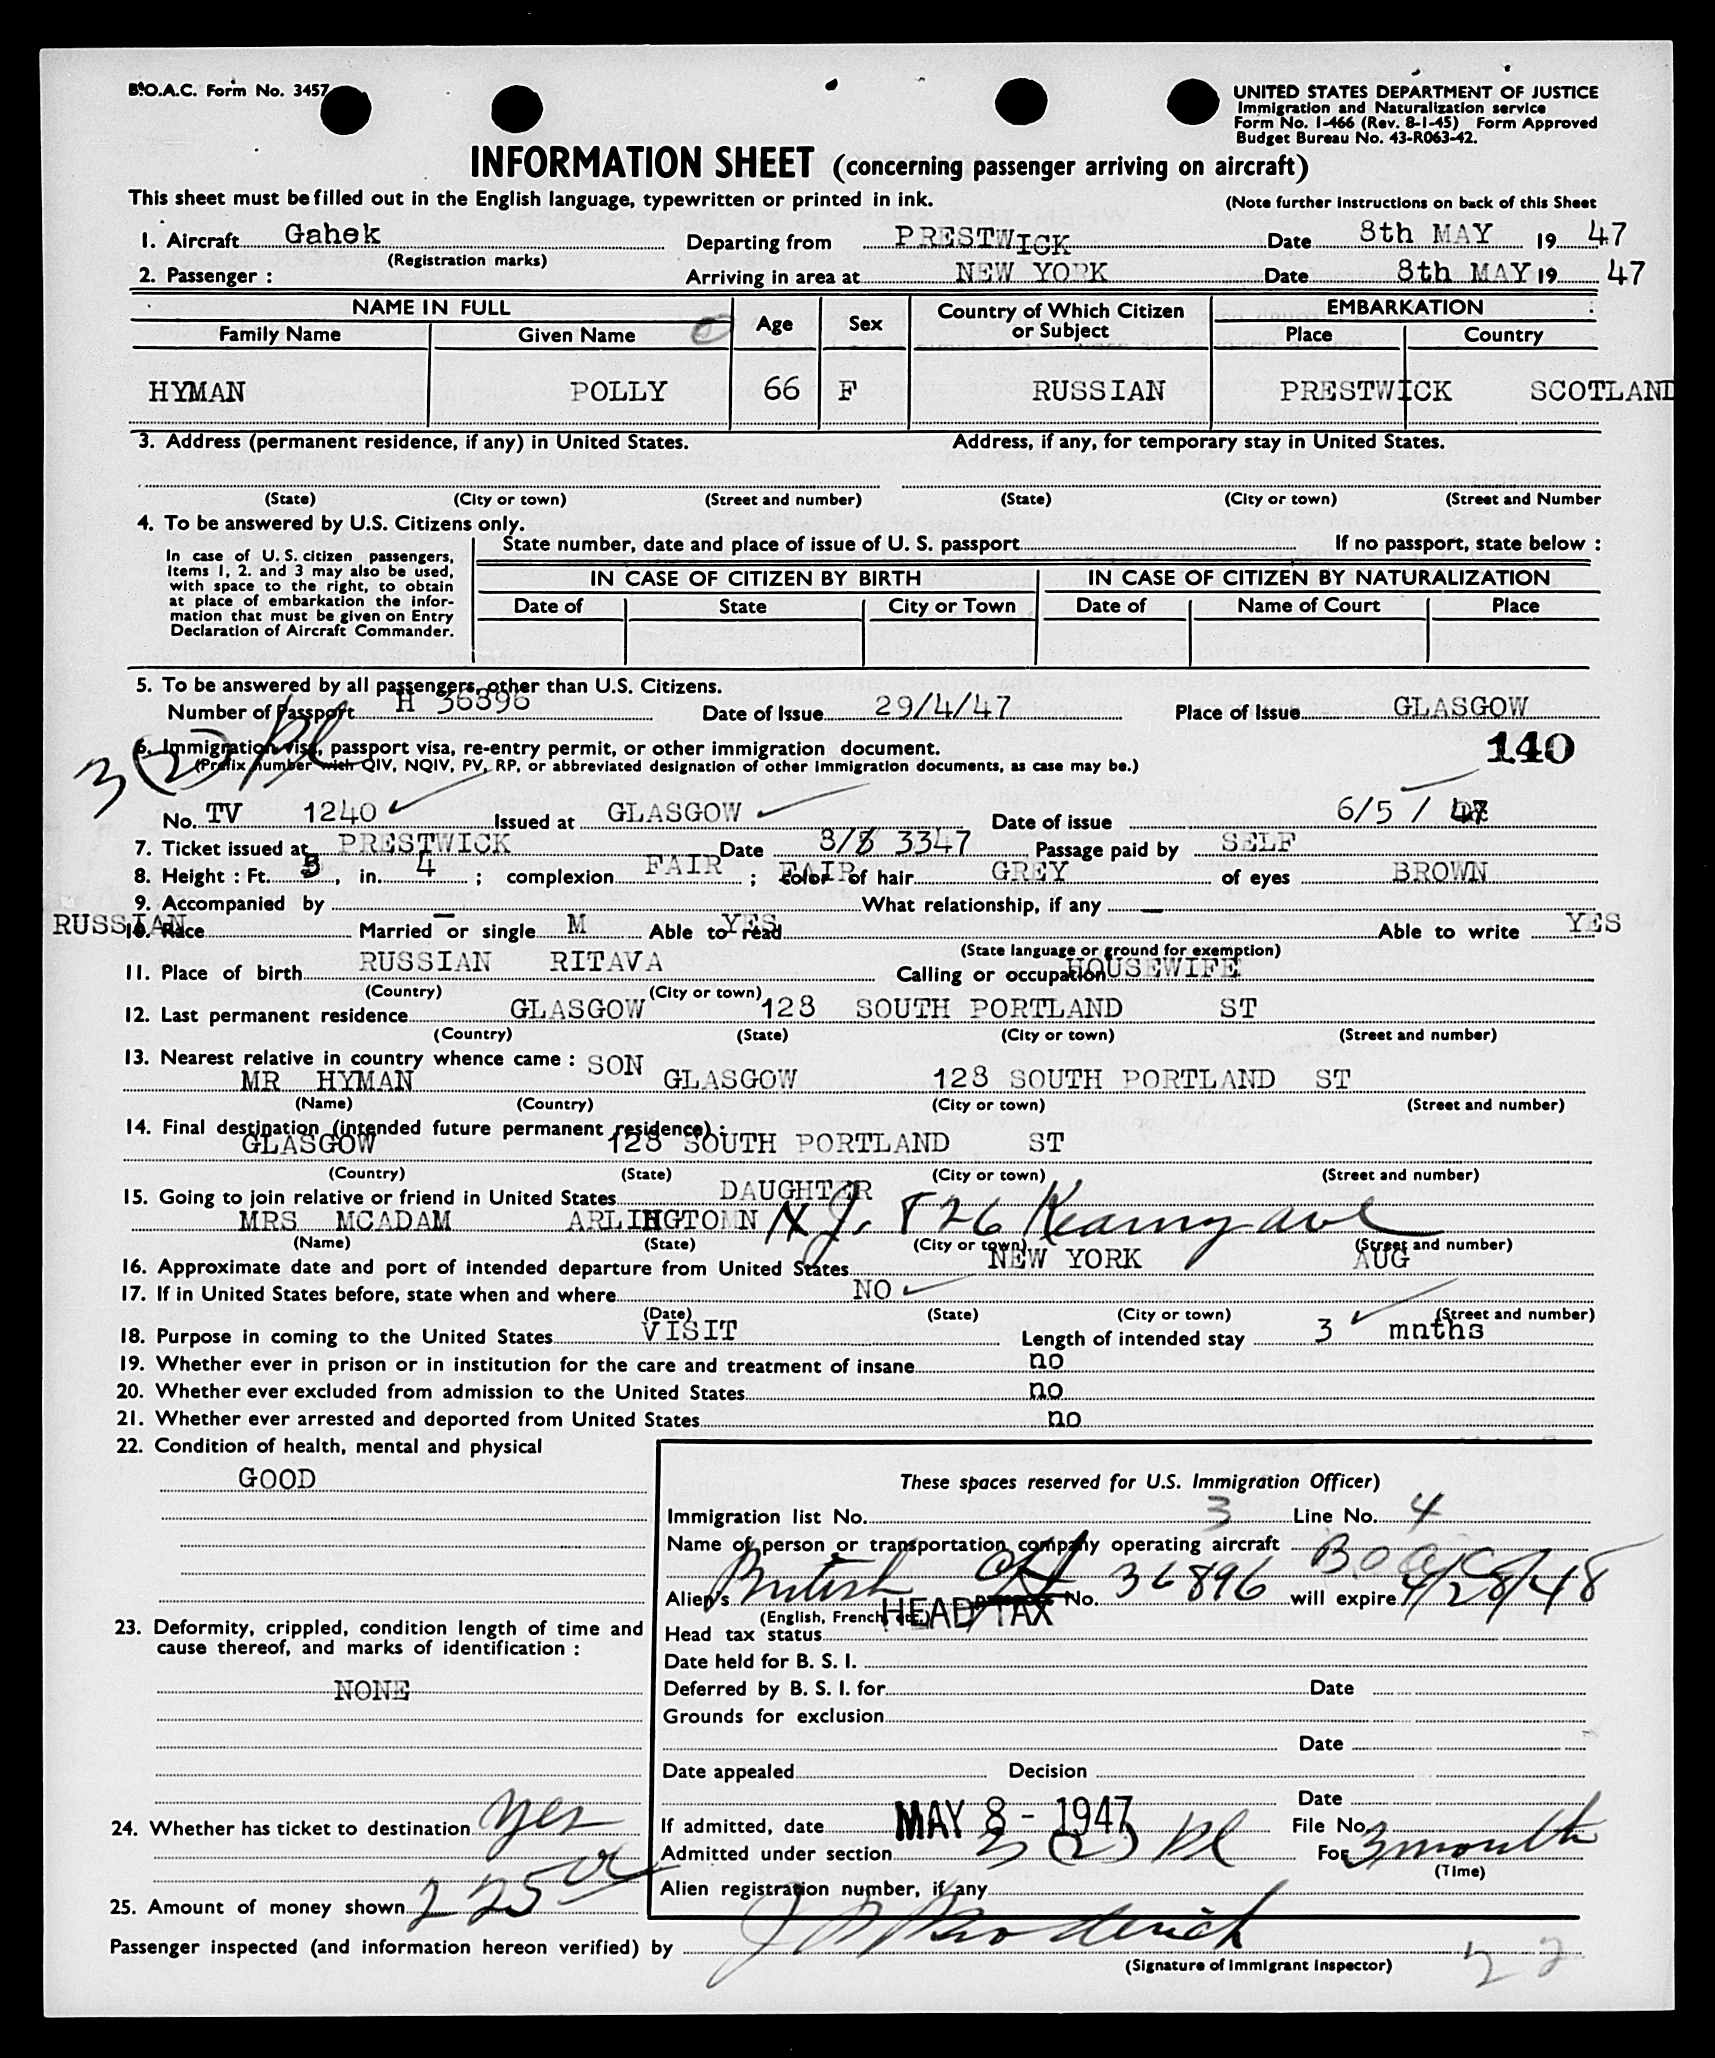 B.O.A.C. Form No. 3457
UNITED STATES DEPARTMENT OF JUSTICE
Immigration and Naturalization service
Form No. I-466 (Rev. 8-1-45) Form Approved
Budget Bureau No. 43-R063-42.
INFORMATION SHEET (concerning passenger arriving on aircraft)
This sheet must be filled out in the English language, typewritten or printed in ink. (Note further instructions on back of this Sheet
1. Aircraft Gahek Departing from PRESTWICK Date 8th MAY 19 47
(Registration marks)
2. Passenger : Arriving in area at NEW YORK Date 8th MAY 19 47
NAME IN FULL Age Sex Country of Which Citizen or Subject EMBARKATION
Family Name Given Name Place Country
HYMAN POLLY 66 F RUSSIAN PRESTWICK SCOTLAND
3. Address (permanent residence, if any) in United States. Address, if any, for temporary stay in United States.
(State) (City or town) (Street and number) (State) (City or town) (Street and Number
4. To be answered by U.S. Citizens only.
In case of U. S. citizen passengers,
Items 1, 2. and 3 may also be used,
with space to the right, to obtain
at place of embarkation the infor-
mation that must be given on Entry
Declaration of Aircraft Commander.
State number, date and place of issue of U. S. passport If no passport, state below :
IN CASE OF CITIZEN BY BIRTH IN CASE OF CITIZEN BY NATURALIZATION
Date of State City or Town Date of Name of Court Place
5. To be answered by all passengers, other than U.S. Citizens.
Number of Passport H 36896 Date of Issue 29/4/47 Place of Issue GLASGOW
6. Immigration visa, passport visa, re-entry permit, or other immigration document. 140
(Prefix number with QIV, NQIV, PV, RP, or abbreviated designation of other immigration documents, as case may be.)
3 (2)
No. TV 1240 Issued at GLASGOW Date of issue 6/5 / 47
7. Ticket issued at PRESTWICK Date 8/5 3347 Passage paid by SELF
8. Height : Ft. 5, in. 4 ; complexion FAIR ; FAIR color of hair GREY of eyes BROWN
9. Accompanied by — What relationship, if any —
10. Race RUSSIAN Married or single M Able to read YES Able to write YES
(State language or ground for exemption)
11. Place of birth RUSSIAN RITAVA Calling or occupation HOUSEWIFE
(Country) (City or town)
12. Last permanent residence GLASGOW 128 SOUTH PORTLAND ST
(Country) (State) (City or town) (Street and number)
13. Nearest relative in country whence came : SON
MR HYMAN GLASGOW 128 SOUTH PORTLAND ST
(Name) (Country) (City or town) (Street and number)
14. Final destination (intended future permanent residence) :
GLASGOW 128 SOUTH PORTLAND ST
(Country) (State) (City or town) (Street and number)
15. Going to join relative or friend in United States DAUGHTER
MRS MCADAM ARLINGTON N N.J. 826 Kearny ave
(Name) (State) (City or town) (Street and number)
16. Approximate date and port of intended departure from United States NEW YORK AUG
17. If in United States before, state when and where NO
(Date) (State) (City or town) (Street and number)
18. Purpose in coming to the United States VISIT Length of intended stay 3 mnths
19. Whether ever in prison or in institution for the care and treatment of insane no
20. Whether ever excluded from admission to the United States no
21. Whether ever arrested and deported from United States no
22. Condition of health, mental and physical
GOOD
23. Deformity, crippled, condition length of time and
cause thereof, and marks of identification :
NONE
24. Whether has ticket to destination yes
25. Amount of money shown 225 00
These spaces reserved for U.S. Immigration Officer)
Immigration list No. 3 Line No. 4
Name of person or transportation company operating aircraft B.O.A.C.
Alien's British No. 36896 will expire 4/28/48
(English, French, etc.) HEAD TAX
Head tax status
Date held for B. S. I.
Deferred by B. S. I. for Date
Grounds for exclusion
Date
Date appealed Decision
Date
If admitted, date MAY 8 - 1947 File No.
Admitted under section 3 (2) For 3 month
(Time)
Alien registration number, if any
Passenger inspected (and information hereon verified) by
(Signature of Immigrant Inspector)